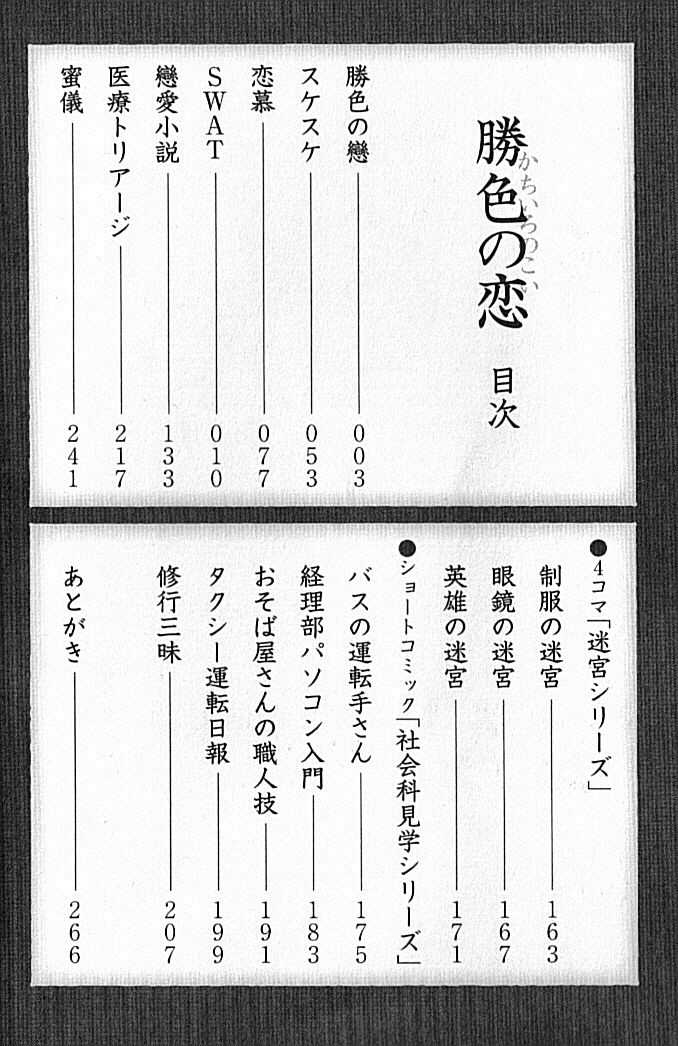 勝色の恋 目次
かちいろのこい
勝色の戀 003
スケスケ 053
恋慕 077
SWAT 010
戀愛小説 133
医療トリアージ 217
蜜儀 241
●4コマ「迷宮シリーズ」
制服の迷宮 163
眼鏡の迷宮 167
英雄の迷宮 171
●ショートコミック「社会科見学シリーズ」
バスの運転手さん 175
経理部パソコン入門 183
おそば屋さんの職人技 191
タクシー運転日報 199
修行三昧 207
あとがき 266